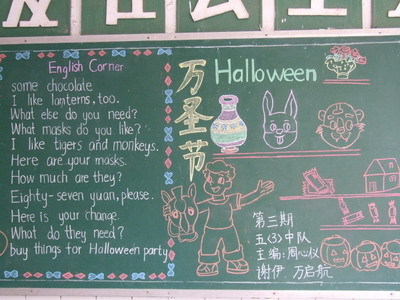 English Corner
some chocolate
I like lanterns. too.
What else do you need?
What masks do you like?
I like tigers and monkeys.
Here are your masks.
How much are they?
Eighty-seven yuan, please.
Here is your change.
What do they need?
buy things for Halloween party
万圣节
Halloween
第三期
五(3)中队
主编:周心仪
谢伊 万启航